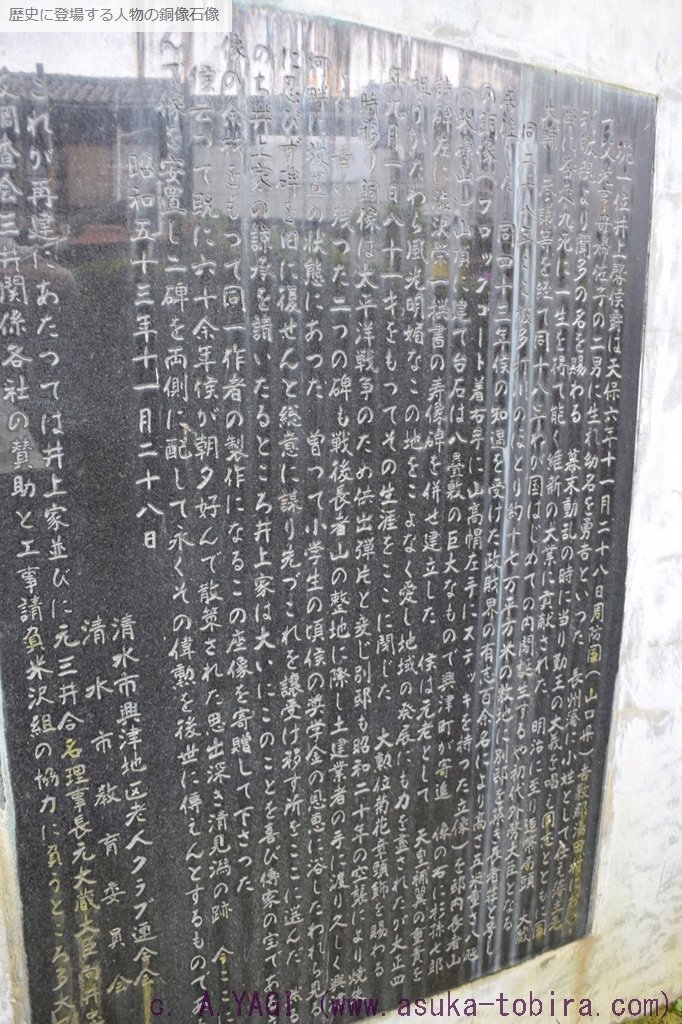 歴史に登場する人物の銅像石像
従一位井上馨侯爵は天保六年十一月二十八日周防国(山口県)吉敷郡湯田村に
の二男に生れ幼名を勇吉といった 長州藩に小姓として仕え藩主毛
利敬親より聞多の名を賜わる 幕末動乱の時に当り勤王の大義を唱え同志とともに国
事に奔走九死に一生を得て能く維新の大業に貢献された 明治に至り造幣局頭 大蔵
大輔 参議等を経て同十八年わが国はじめての内閣誕生するや初代外務大臣となる
同二十 年ここ波多打川のほとり約十七万平方米の敷地に別邸を築き長者荘と号し
同四十三年侯の知遇を受けた政財界の有志百余名により高 五米重さ八
の銅像(フロックコート着右手に山高帽左手にステッキを持った立像)を邸内長者山
山頂に建て台石は八畳敷の巨大なもので興津町が寄進 像の右に杉孫七郎
左に渋沢栄一撰書の寿像碑を併せ建立した 侯は元老として 天皇輔翼の重責を
担うかたわら風光明媚なこの地をこよなく愛し地域の発展にも力を盡されたが大正四
年九月一日八十一才をもつてその生涯をここに閉じた 大勲位菊花章頸飾を賜わる
時移り銅像は太平洋戦争のため供出弾片と変じ別邸も昭和二十年の空襲により焼
幸い残つた二つの碑も戦後長者山の整地に際し土建業者の手に渡り久しく興
河畔に放置の状態にあつた 曽つて小学生の頃侯の奨学金の恩恵に浴したわれら見る
に忍びず碑を旧に復せんと総意に謀り先づこれを譲受け移す所をここに選んだ
のち井上家の諒承を請いたるところ井上家は大いにこのことを喜び傳家の宝で
侯の余 をもつて同一作者の製作になるこの座像を寄贈して下さつた
侯去つて既に六十余年侯が朝夕好んで散策された思出深き清見潟の跡 今ここ
んで像を安置し二碑を両側に配して永くその偉勲を後世に傳えんとするもので
昭和五十三年十一月二十八日
清水市興津地区老人クラブ連合会
清水市教育委員会
これが再建にあたつては井上家並びに元三井合名理事長元大蔵大臣向井
会三井関係各社の賛助と工事請負米沢組の協力に負うところ多大
c. A.YAGI (www.asuka-tobira.com)